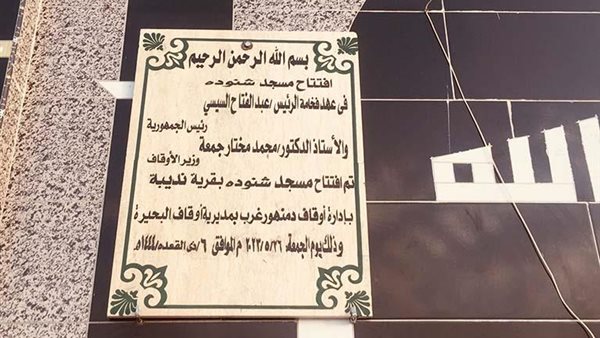 بسم الله الرحمن الرحيم
افتتاح مسجد شنوده
فى عهد فخامة الرئيس /عبد الفتاح السيسي
رئيس الجمهورية
والأستاذ الدكتور/محمد مختار جمعة
وزير الأوقاف
تم افتتاح مسجد شنوده بقرية نديبة
بإدارة أوقاف دمنهور غرب بمديرية أوقاف البحيرة
وذلك يوم الجمعة ٢٠٢٣/٥/٢٦ م الموافق ٦/ذى القعده/١٤٤٤هـ
الله